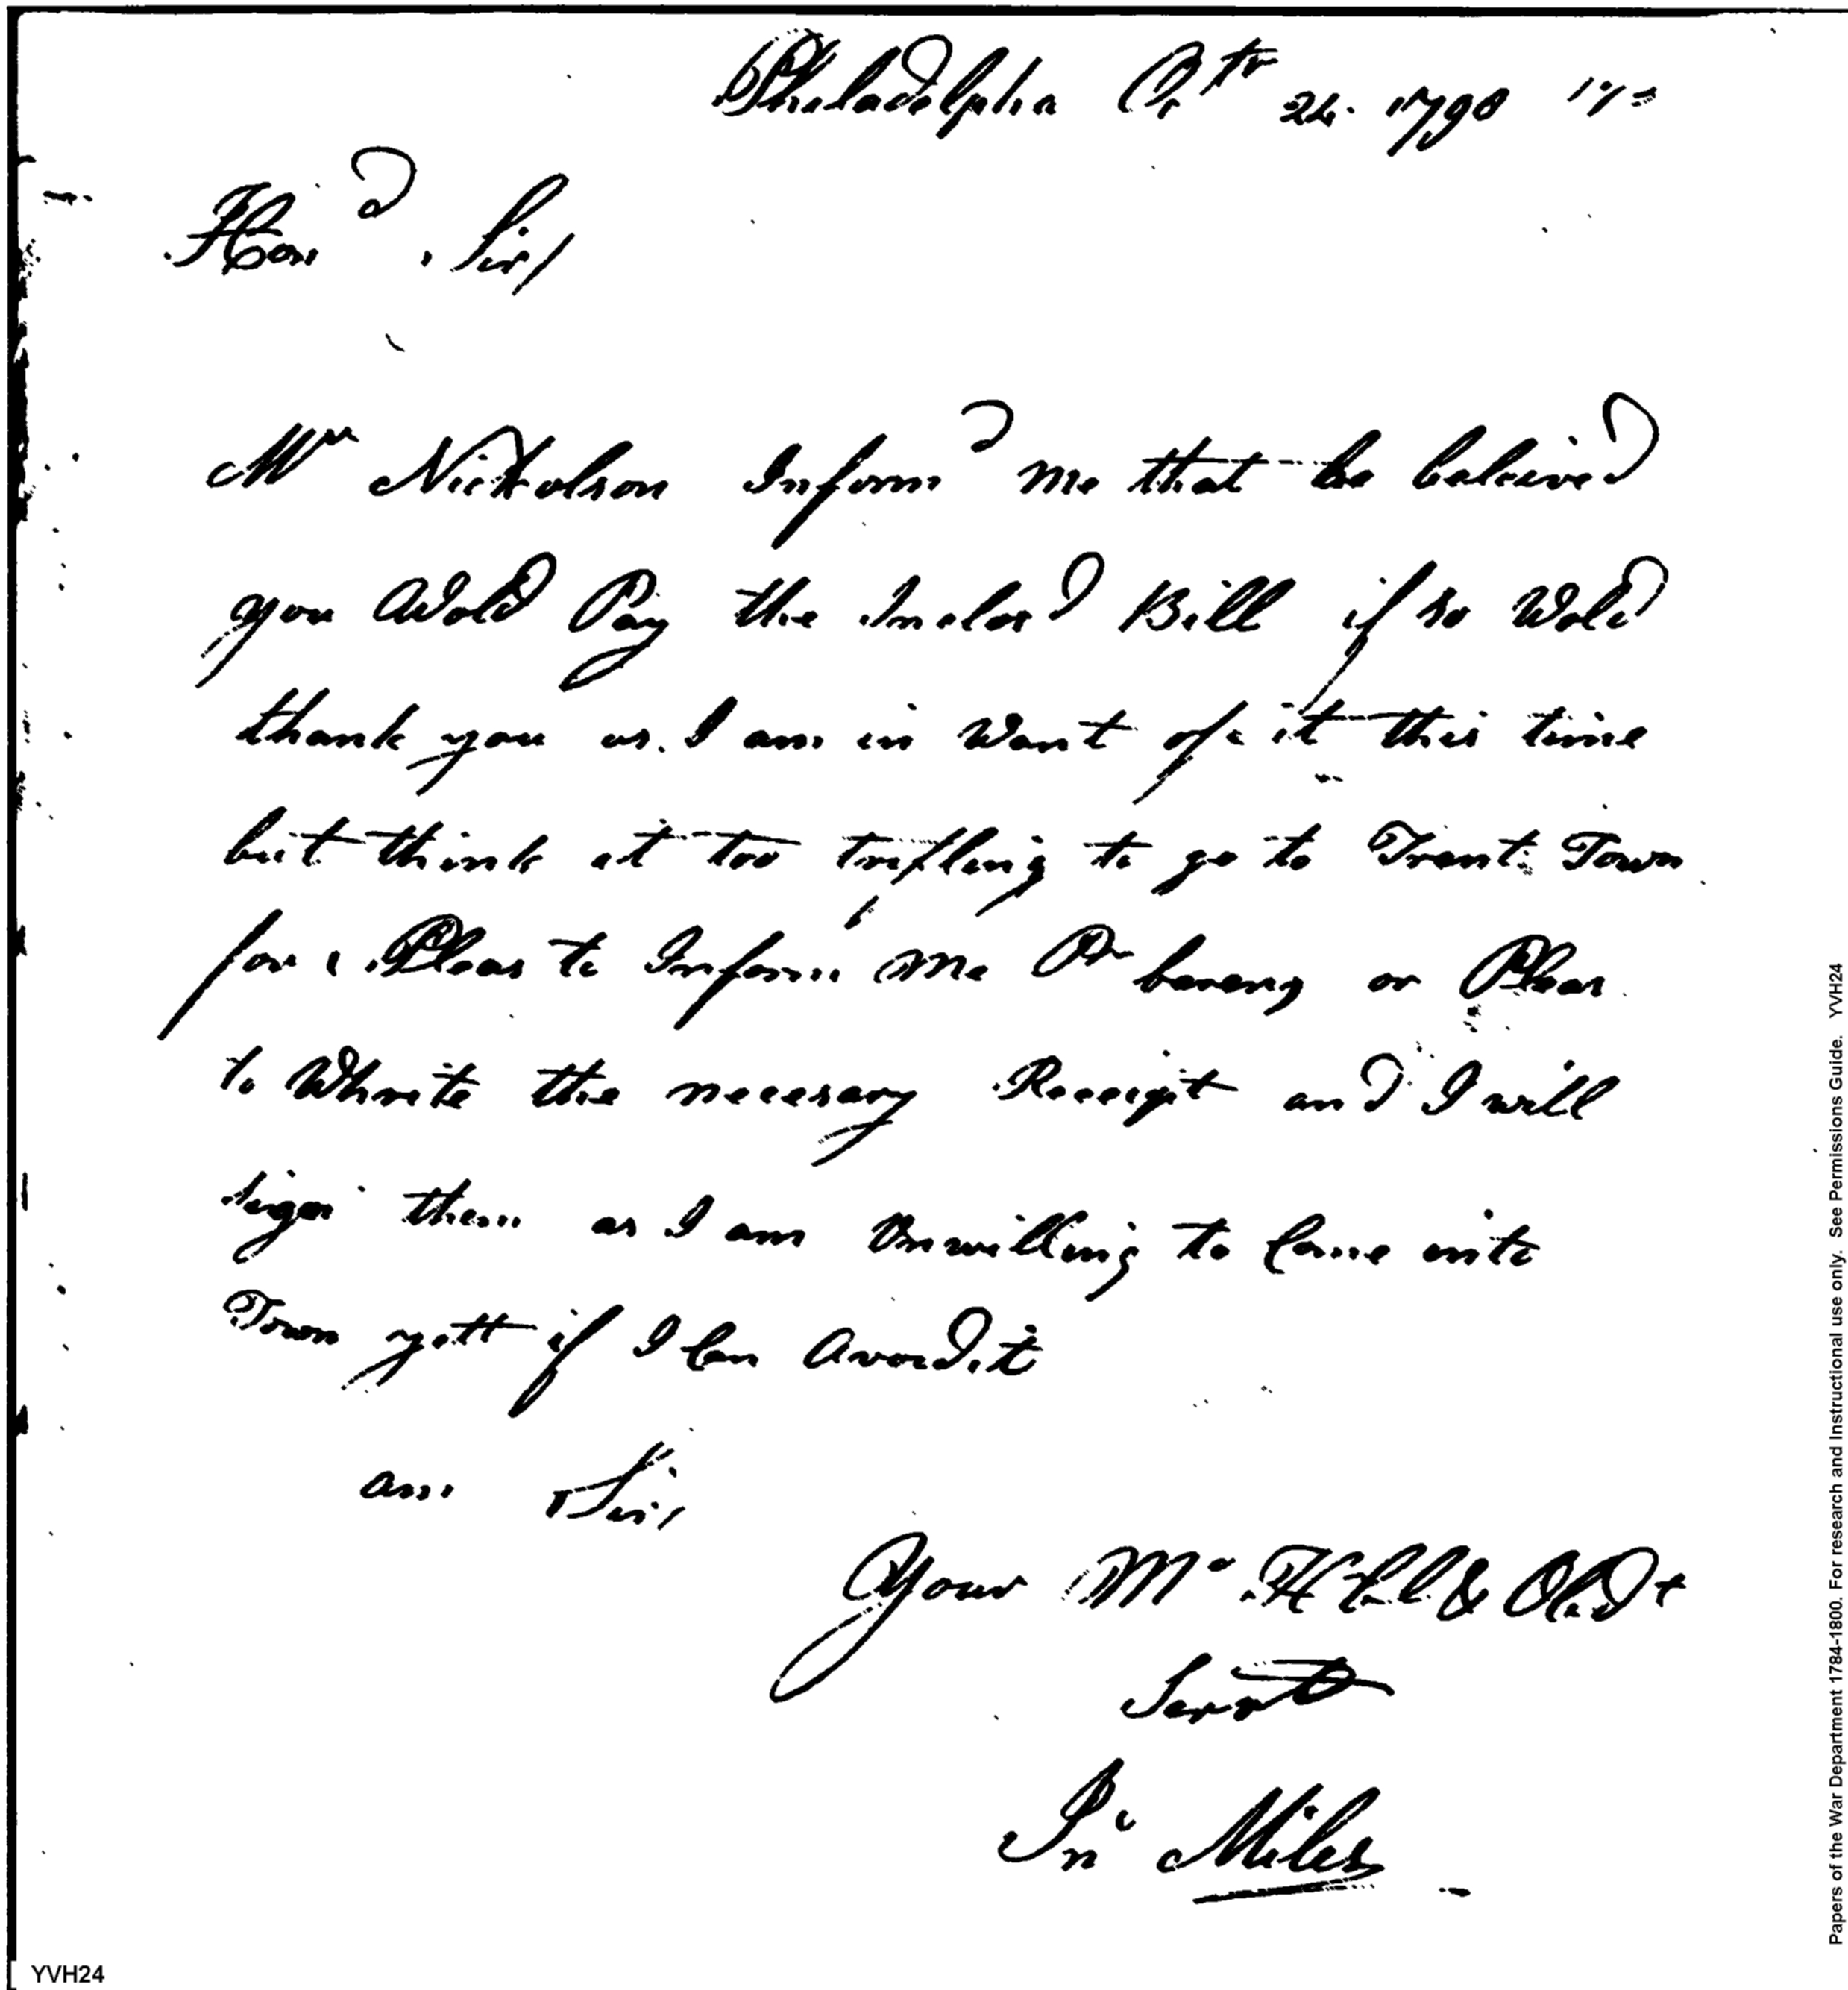 Philadelphia Octr 24. 1798
Hond. Sir/
Mr Nickolson Informd me that he beleived
you Wold Pay the Inclosd Bill if so Wold
thank you as I am in Want of it this time
but think it too trifling to go to Trent Town
for Pleas to Inform me Pr bareng or Pleas
to Whrite the necesary Receipt and I will
sign them as I am Unwilling to Come into
Town yett if I Can Avoid it
am Sir
Your Mo Hble & Obdt
Servt
Jno Miles
Papers of the War Department 1784-1800. For research and Instructional use only. See Permissions Guide. YVH24
YVH24